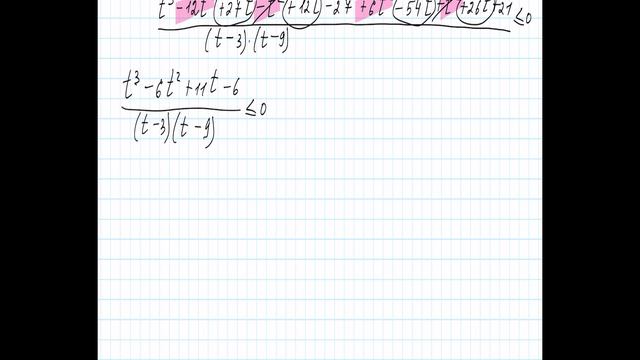 t³ -12t² +27t -t² +12t -27 +6t² -54t -t² +26t +21 ≤0
(t-3)·(t-9)
t³ -6t² +11t -6 ≤0
(t-3)(t-9)